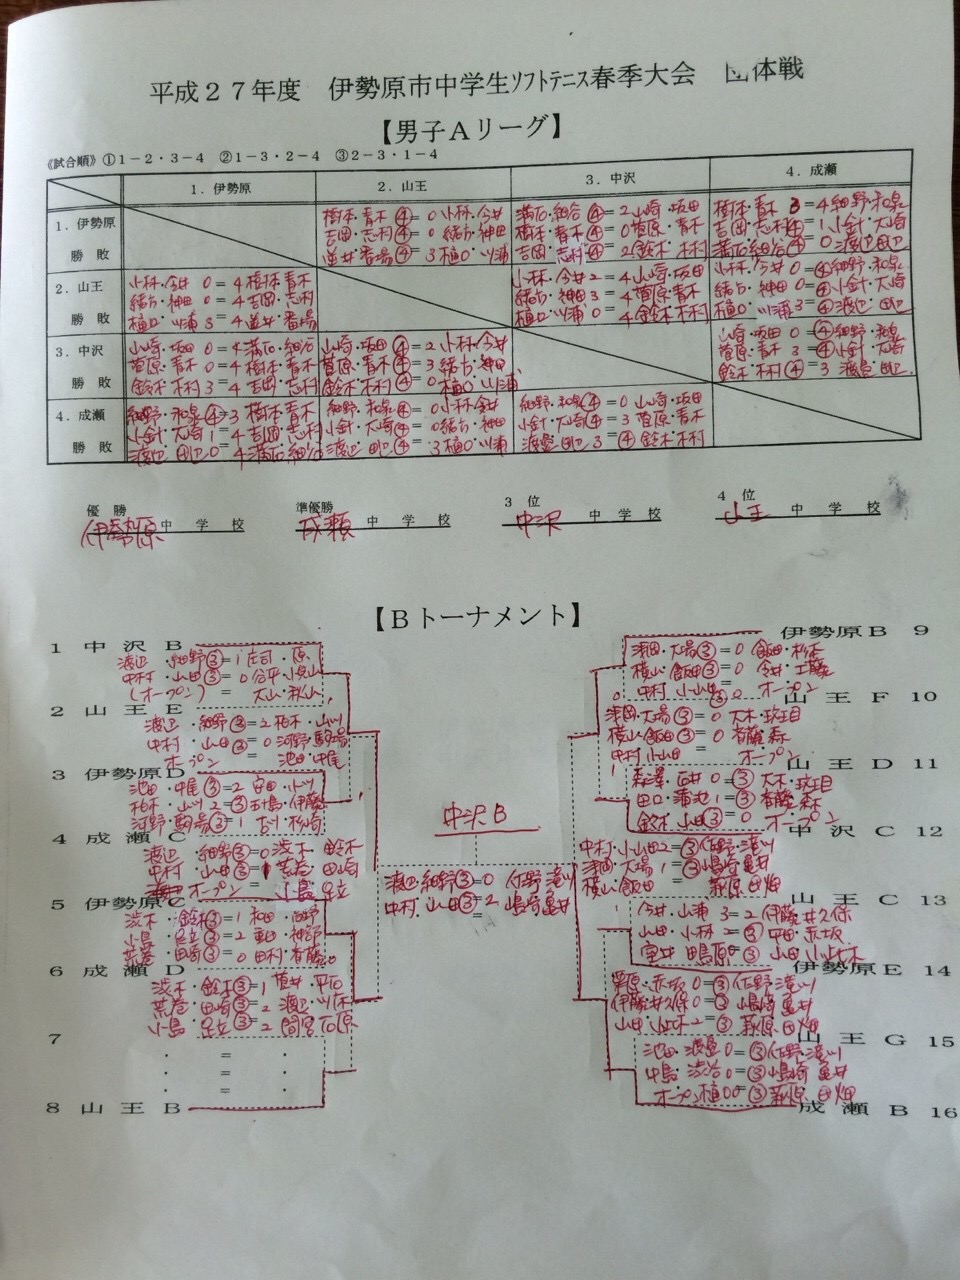 平成27年度 伊勢原市中学生ソフトテニス春季大会 団体戦
【男子Aリーグ】
《試合順》①1-2・3-4 ②1-3・2-4 ③2-3・1-4
1.伊勢原 2.山王 3.中沢 4.成瀬
1.伊勢原
勝敗
樹本・青木④=0小林・今井
吉岡・志村④=0緒方・神田
④=3樋口・
満石・細谷④=2山崎・坂田
樹本・青木④=0菅原・青木
吉岡・志村④=2鈴木・木村
樹本・青木3=4細野・和泉
吉岡・志村④=1小針・大崎
満石・細谷④=0渡辺・田辺
2.山王
勝敗
小林・今井0=4樹本・青木
緒方・神田0=4吉岡・志村
樋口・3=4
小林・今井2=4山崎・坂田
緒方・神田3=4菅原・青木
樋口・0=4鈴木・木村
小林・今井0=④細野・和泉
緒方・神田0=④小針・大崎
樋口・3=④渡辺・田辺
3.中沢
勝敗
山崎・坂田0=4満石・細谷
菅原・青木0=4樹本・青木
鈴木・木村3=4吉岡・志村
山崎・坂田④=2小林・今井
菅原・青木④=3緒方・神田
鈴木・木村④=0樋口・
山崎・坂田0=④細野・和泉
菅原・青木3=④小針・大崎
鈴木・木村④=3渡辺・田辺
4.成瀬
勝敗
細野・和泉④=3樹本・青木
小針・大崎1=4吉岡・志村
渡辺・田辺0=4満石・細谷
細野・和泉④=0小林・今井
小針・大崎④=0緒方・神田
渡辺・田辺④=3樋口・
細野・和泉④=0山崎・坂田
小針・大崎④=3菅原・青木
渡辺・田辺3=④鈴木・木村
優勝 伊勢原中学校
準優勝 成瀬中学校
3位 中沢中学校
4位 山王中学校
【Bトーナメント】
1 中沢B
渡辺・細野③=1庄司・原
中村・山田③=0
(オープン)= 大山・秋山
2 山王E
渡辺・細野③=2柏木・
中村・山田③=0河野・駒場
オープン = 池田・中尾
3 伊勢原D
池田・中尾③=2安田・小沢
柏木・2=③五十島・伊藤
河野・駒場③=1
4 成瀬C
渡辺・細野③=0渋木・鈴木
中村・山田③=1荒巻・田崎
オープン = 小島・足立
5 伊勢原C
渋木・鈴木③=1和田・
小島・足立③=2
荒巻・田崎③=0田村・斉藤
6 成瀬D
渋木・鈴木③=1
荒巻・田崎③=2渡辺・
小島・足立③=2間宮・石原
7
・ = ・
・ = ・
・ = ・
8 山王B
中沢B
渡辺・細野③=0佐野・滝川
中村・山田③=2嶋崎・亀井
伊勢原B 9
津岡・大場③=0飯田・
横山・飯田③=0今井・工藤
中村・小山田③= オープン
山王F 10
津岡・大場③=0大木・
横山・飯田③=0斉藤・森
中村・小山田= オープン
山王D 11
森澤・0=③大木・
田口・蒲池1=③斉藤・森
鈴木・山田③=0オープン
中沢C 12
中村・小山田2=③佐野・滝川
津岡・大場1=③嶋崎・亀井
横山・飯田 = 萩原・田畑
山王C 13
今井・山浦3=2伊藤・井久保
山田・小林2=③平田・赤坂
室井・鴨原③=
伊勢原E 14
0=③佐野・滝川
伊藤・井久保0=③嶋崎・亀井
2=③萩原・田畑
山王G 15
池田・渡邉0=③佐野・滝川
中島・0=③嶋崎・亀井
オープン 0=③萩原・田畑
成瀬B 16